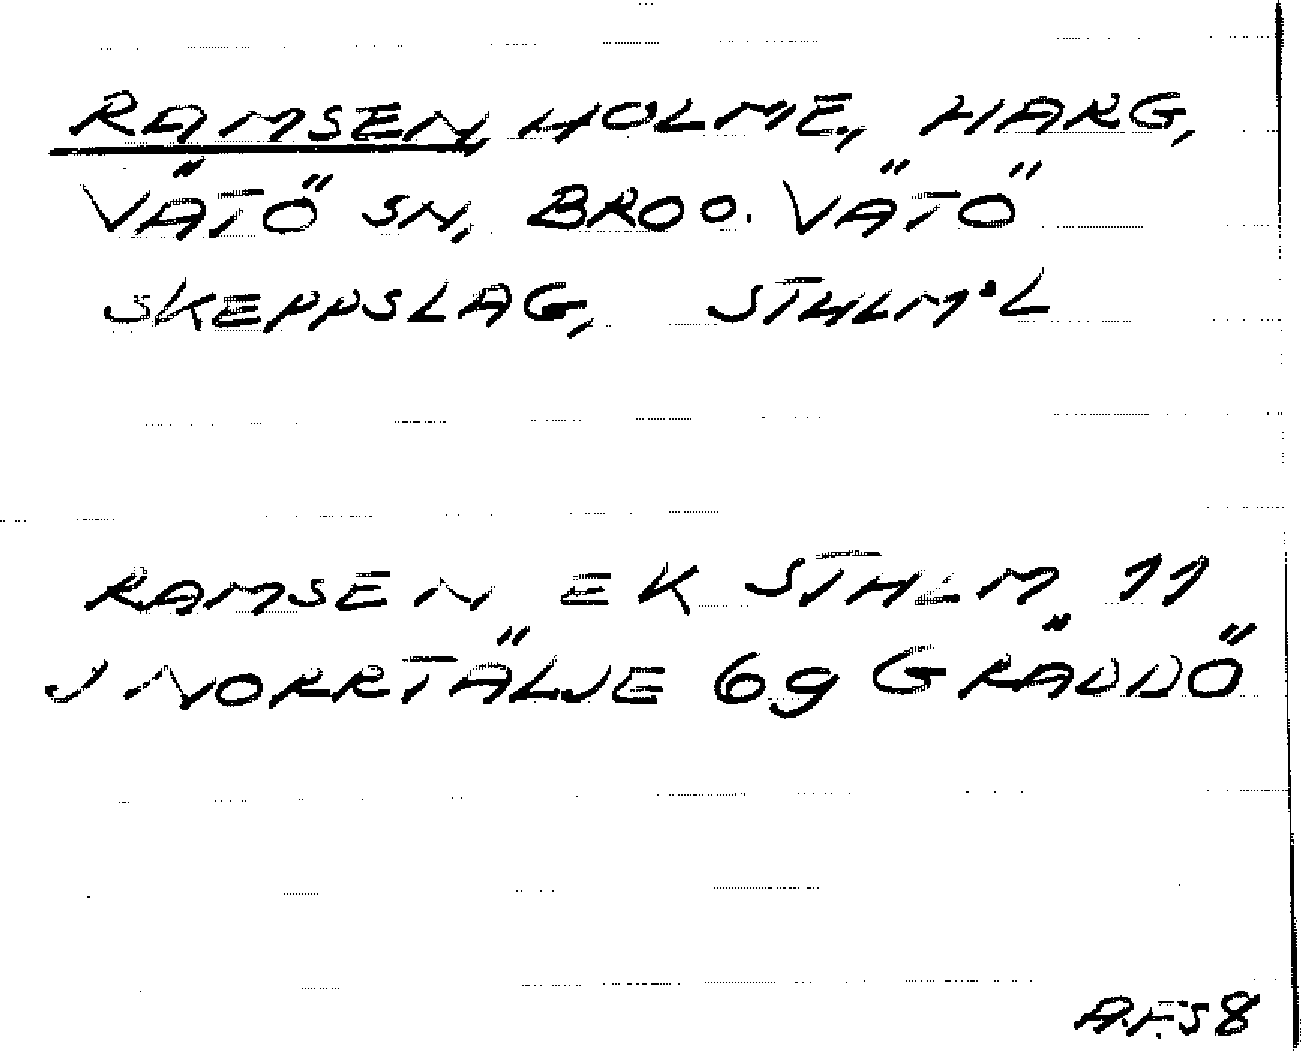 RAMSEN, HOLME, HARG,
VÄTÖ SN, BRO O. VÄTÖ
SKEPPSLAG, STHLM·L
RAMSEN EK STHLM 11
J NORRTÄLJE 69 GRÄDDÖ
A.F.58